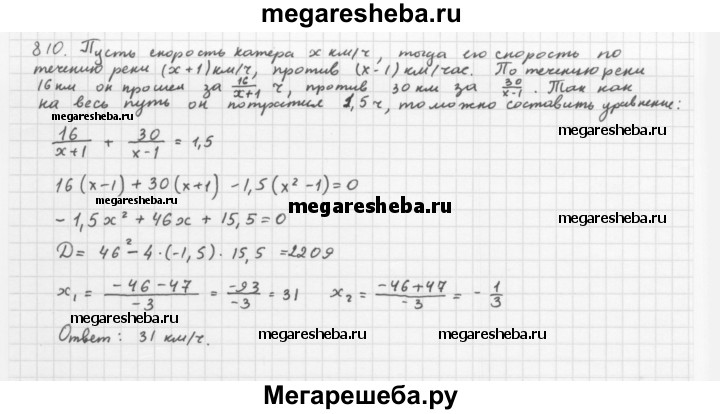 megaresheba.ru
810. Пусть скорость катера x км/ч, тогда его скорость по
течению реки (x+1) км/ч, против (x-1) км/час. По течению реки
16 км он прошел за 16/(x+1) ч, против 30 км за 30/(x-1). Так как
на весь путь он потратил 1,5 ч, то можно составить уравнение:
megaresheba.ru megaresheba.ru
16/(x+1) + 30/(x-1) = 1,5
16(x-1) + 30(x+1) - 1,5(x² - 1) = 0
megaresheba.ru
- 1,5x² + 46x + 15,5 = 0
D = 46² - 4·(-1,5)·15,5 = 2209
x₁ = (-46-47)/-3 = -93/-3 = 31 x₂ = (-46+47)/-3 = - 1/3
megaresheba.ru
Ответ: 31 км/ч.
megaresheba.ru megaresheba.ru
Мегарешеба.ру